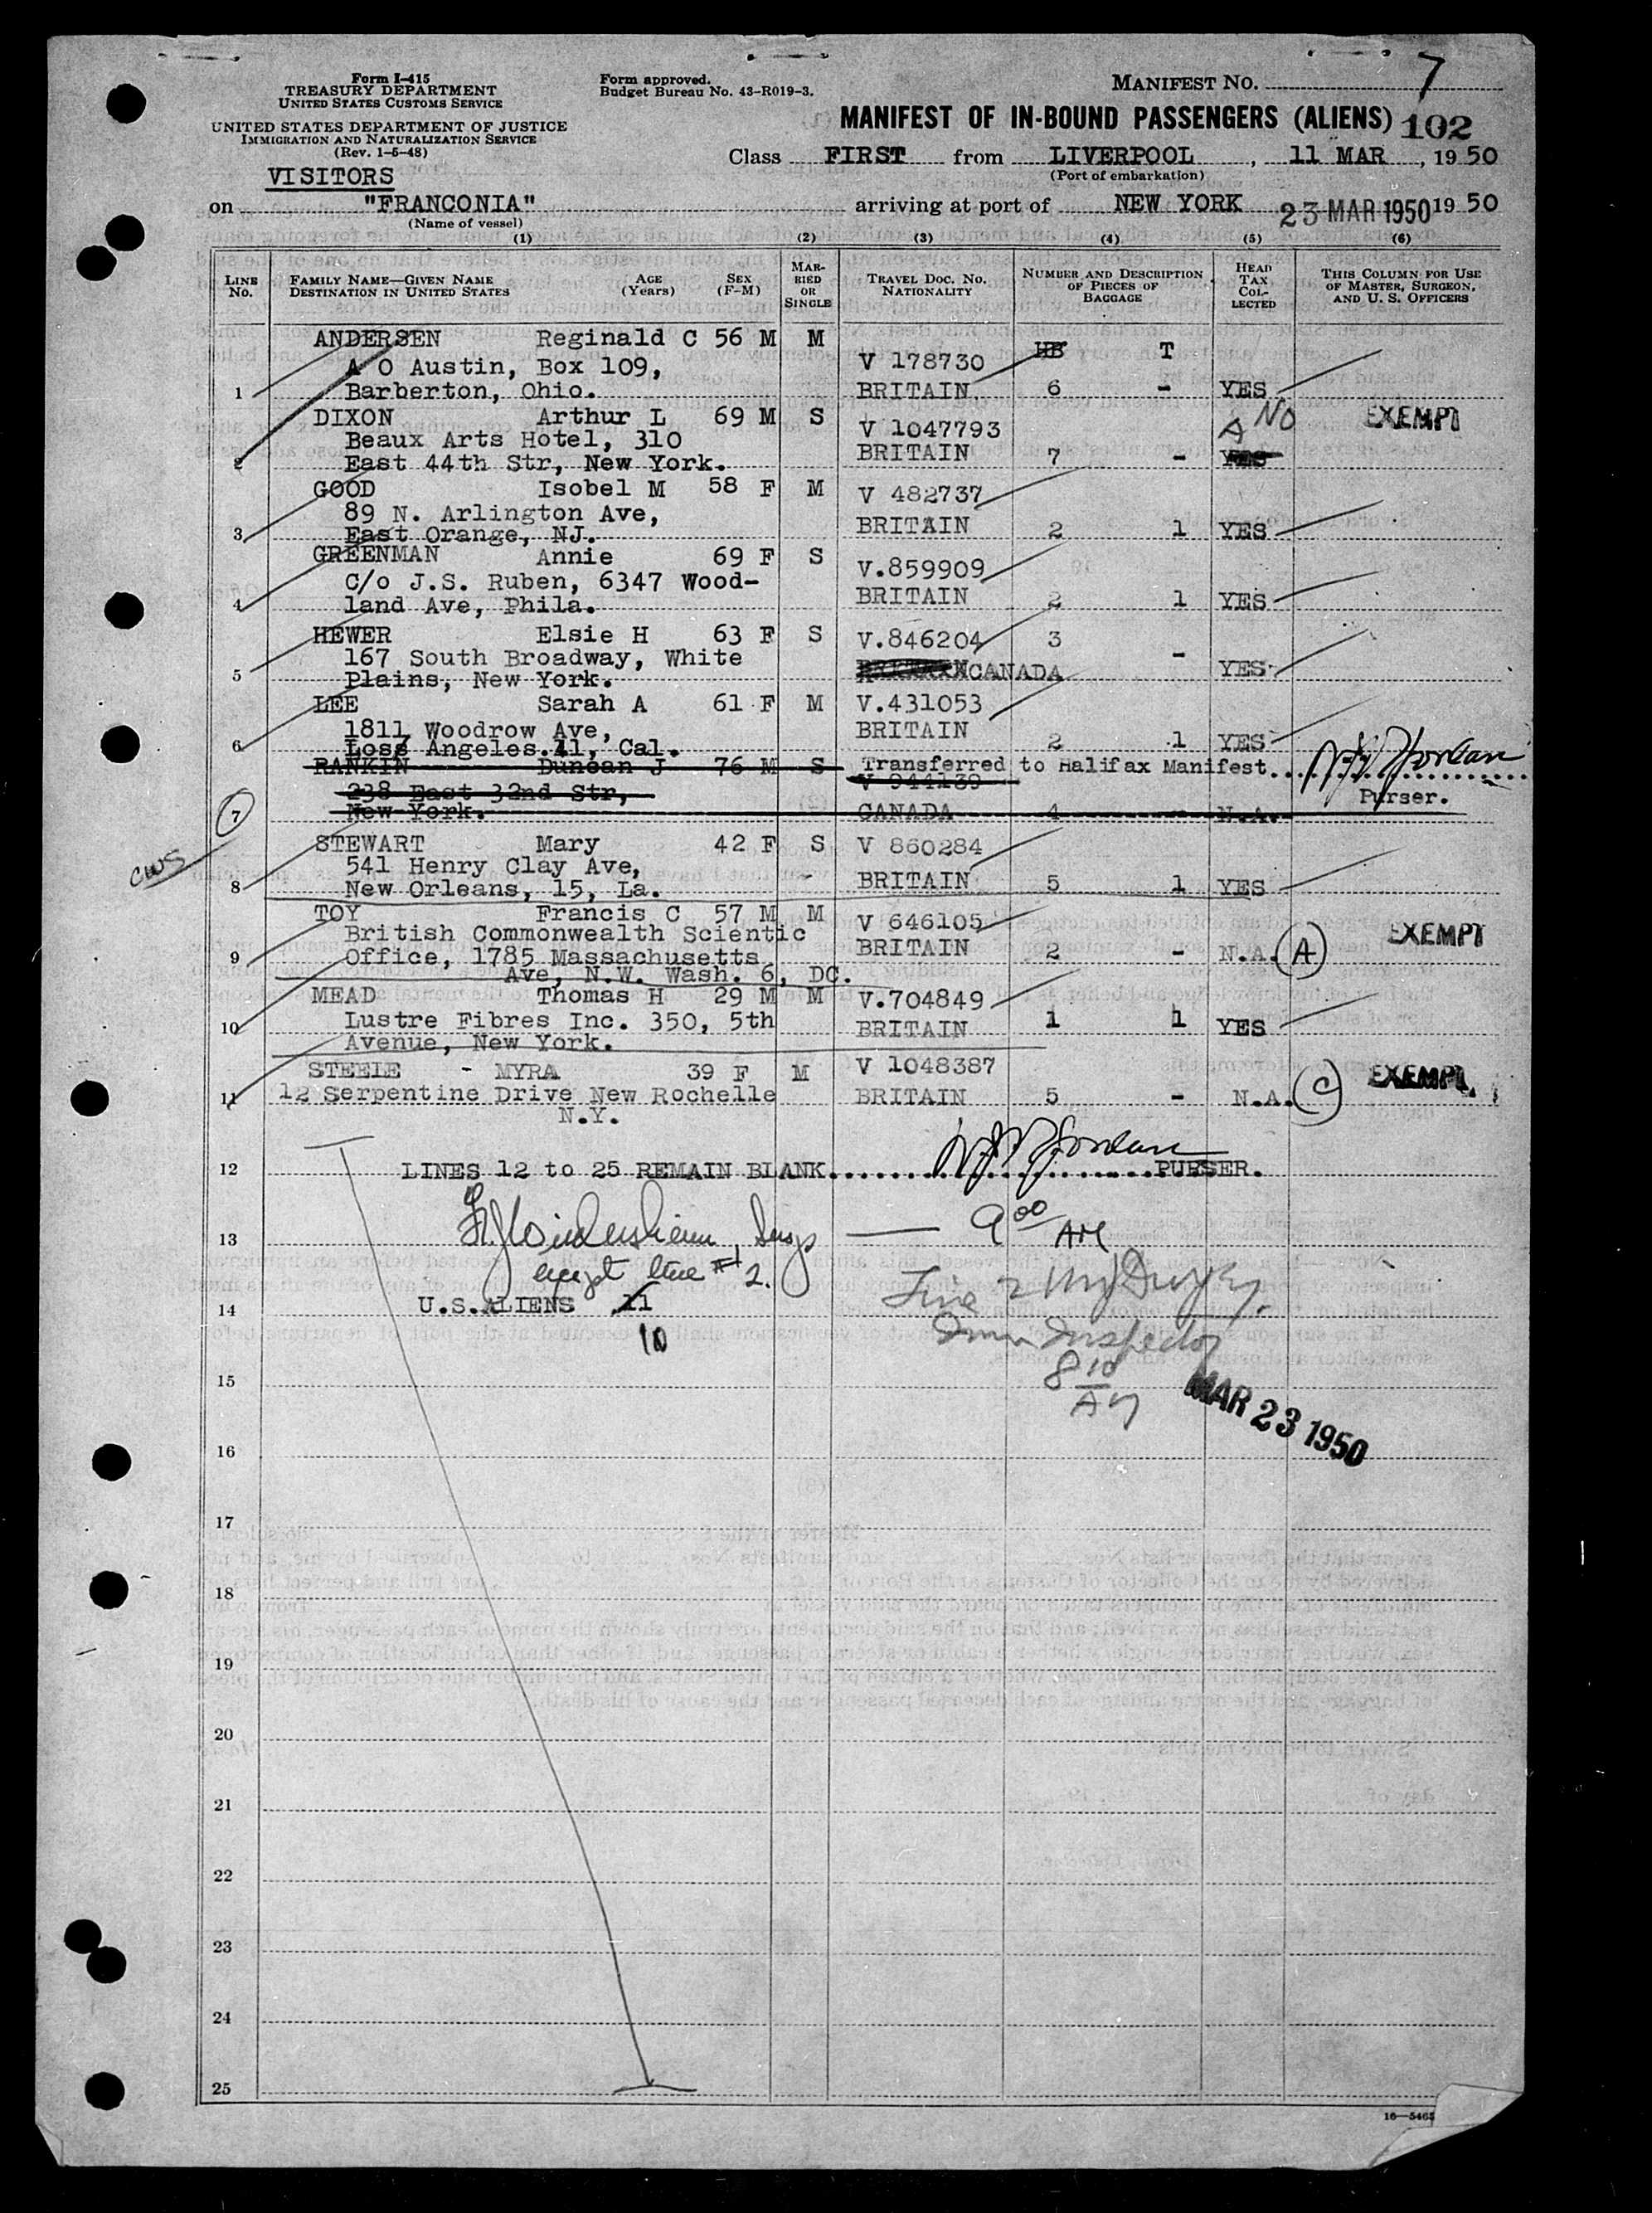 Form I-415
TREASURY DEPARTMENT
UNITED STATES CUSTOMS SERVICE
UNITED STATES DEPARTMENT OF JUSTICE
IMMIGRATION AND NATURALIZATION SERVICE
(Rev. 1-5-48)
Form approved.
Budget Bureau No. 43-R019-3.
MANIFEST NO. 7
MANIFEST OF IN-BOUND PASSENGERS (ALIENS) 102
Class FIRST from LIVERPOOL, 11 MAR, 1950
(Port of embarkation)
VISITORS
on "FRANCONIA" arriving at port of NEW YORK 23 MAR 1950 1950
(Name of vessel)
(1) (2) (3) (4) (5) (6)
LINE No. FAMILY NAME—GIVEN NAME DESTINATION IN UNITED STATES AGE (Years) SEX (F-M) MARRIED OR SINGLE TRAVEL DOC. NO. NATIONALITY NUMBER AND DESCRIPTION OF PIECES OF BAGGAGE HEAD TAX COLLECTED THIS COLUMN FOR USE OF MASTER, SURGEON, AND U. S. OFFICERS
ANDERSEN Reginald C 56 M M HB T
A O Austin, Box 109, V 178730
1 Barberton, Ohio. BRITAIN 6 - YES
DIXON Arthur L 69 M S V 1047793 A NO EXEMPT
Beaux Arts Hotel, 310
2 East 44th Str, New York. BRITAIN 7 - YES
GOOD Isobel M 58 F M V 482737
89 N. Arlington Ave,
3 East Orange, NJ. BRITAIN 2 1 YES
GREENMAN Annie 69 F S V.859909
C/o J.S. Ruben, 6347 Wood-
4 land Ave, Phila. BRITAIN 2 1 YES
HEWER Elsie H 63 F S V.846204 3
167 South Broadway, White
5 Plains, New York. CANADA - YES
LEE Sarah A 61 F M V.431053
1811 Woodrow Ave, BRITAIN
6 Loss Angeles.11, Cal. 2 1 YES
RANKIN Duncan J 76 M S Transferred to Halifax Manifest..
238 East 32nd Str, V 944139 Purser.
7 New York. CANADA 4 - N.A.
STEWART Mary 42 F S V 860284
541 Henry Clay Ave,
CWS
8 New Orleans, 15, La. - BRITAIN 5 1 YES
TOY Francis C 57 M M V 646105 EXEMPT
British Commonwealth Scientic
9 Office, 1785 Massachusetts BRITAIN 2 - N.A. A
Ave, N.W. Wash. 6, DC.
MEAD Thomas H 29 M M V.704849
10 Lustre Fibres Inc. 350, 5th BRITAIN 1 1 YES
Avenue, New York.
STEELE - MYRA 39 F M V 1048387 EXEMPT
11 12 Serpentine Drive New Rochelle BRITAIN 5 - N.A. C
N.Y.
12 LINES 12 to 25 REMAIN BLANK. PURSER.
13 9 00 AM
except line #2.
14 U.S.ALIENS 11
Line 2
10
Imm Inspector
15 8 10
AM
MAR 23 1950
16
17
18
19
20
21
22
23
24
25